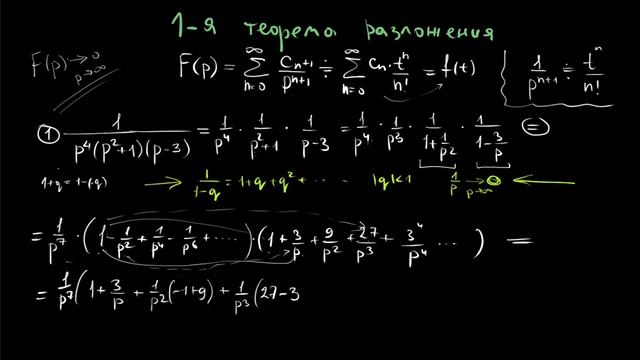 1-я теорема разложения
F(p) → 0 p→∞
F(p) = ∑_{n=0}^{∞} c_{n+1}/p^{n+1} ÷ ∑_{n=0}^{∞} c_n · t^n/n! = f(t)
1/p^{n+1} ÷ t^n/n!
① 1/(p^4(p^2+1)(p-3)) = 1/p^4 · 1/(p^2+1) · 1/(p-3) = 1/p^4 · 1/p^3 · 1/(1+1/p^2) · 1/(1-3/p) (=)
1+q = 1-(-q) → 1/(1-q) = 1+q+q^2+ ····· |q|<1 1/p → 0 p→∞ ←
= 1/p^7 · (1 - 1/p^2 + 1/p^4 - 1/p^6 + ·····) · (1 + 3/p + 9/p^2 + 27/p^3 + 3^4/p^4 ···) =
= 1/p^7 (1 + 3/p + 1/p^2(-1+9) + 1/p^3 (27-3